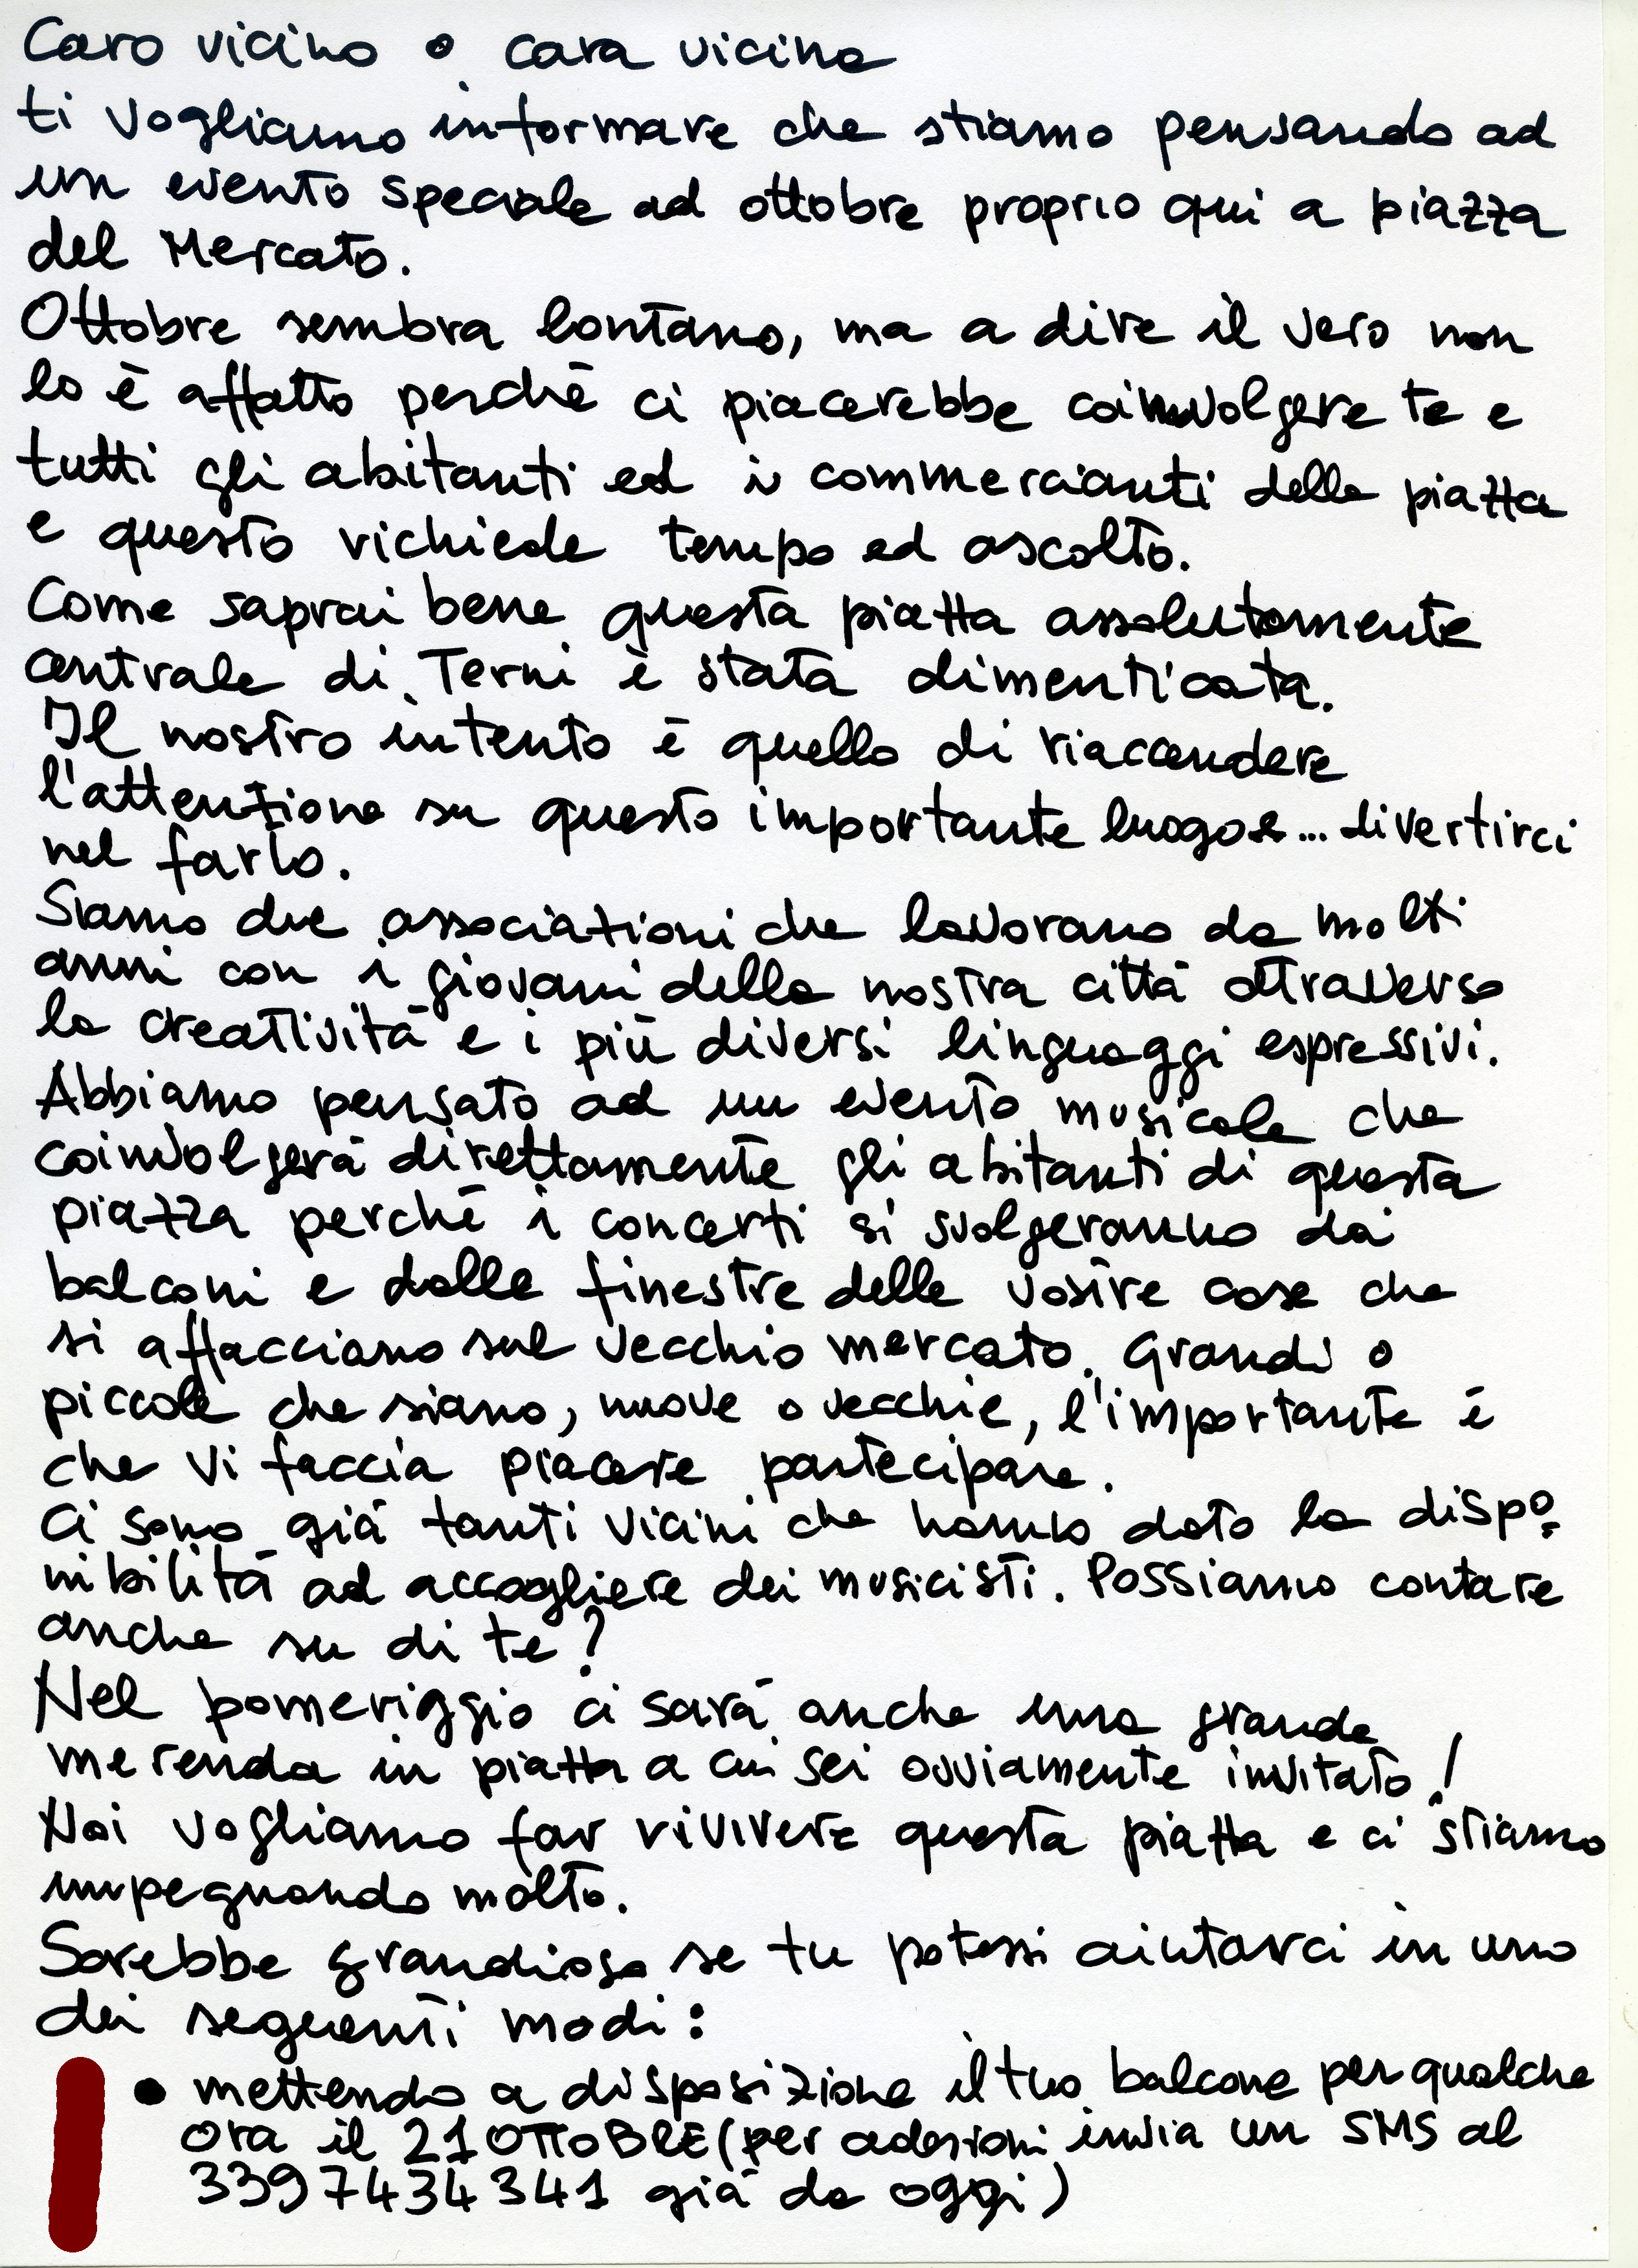 Caro vicino o cara vicina
ti vogliamo informare che stiamo pensando ad
un evento speciale ad ottobre proprio qui a piazza
del Mercato.
Ottobre sembra lontano, ma a dire il vero non
lo è affatto perché ci piacerebbe coinvolgere te e
tutti gli abitanti ed i commercianti della piazza
e questo richiede tempo ed ascolto.
Come saprai bene questa piazza assolutamente
centrale di Terni è stata dimenticata.
Il nostro intento è quello di riaccendere
l'attenzione su questo importante luogo e... divertirci
nel farlo.
Siamo due associazioni che lavorano da molti
anni con i giovani della nostra città attraverso
la creatività e i più diversi linguaggi espressivi.
Abbiamo pensato ad un evento musicale che
coinvolgerà direttamente gli abitanti di questa
piazza perché i concerti si svolgeranno dai
balconi e dalle finestre delle vostre case che
si affacciano sul vecchio mercato. Grandi o
piccole che siano, nuove o vecchie, l'importante è
che vi faccia piacere partecipare.
Ci sono già tanti vicini che hanno dato la dispo=
nibilità ad accogliere dei musicisti. Possiamo contare
anche su di te?
Nel pomeriggio ci sarà anche una grande
merenda in piazza a cui sei ovviamente invitato!
Noi vogliamo far rivivere questa piazza e ci stiamo
impegnando molto.
Sarebbe grandioso se tu potessi aiutarci in uno
dei seguenti modi:
• mettendo a disposizione il tuo balcone per qualche
ora il 21 OTTOBRE (per adesioni invia un SMS al
3397434341 già da oggi)